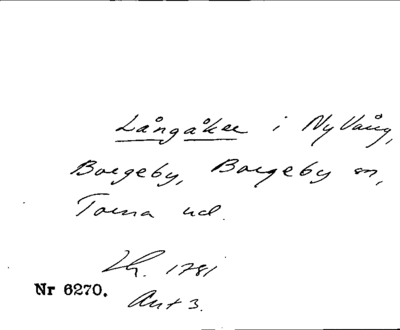 Långåker i NyVång,
Borgeby, Borgeby sn,
Torna hd.
Lh. 1781
Nr 6270.
Akt 3.